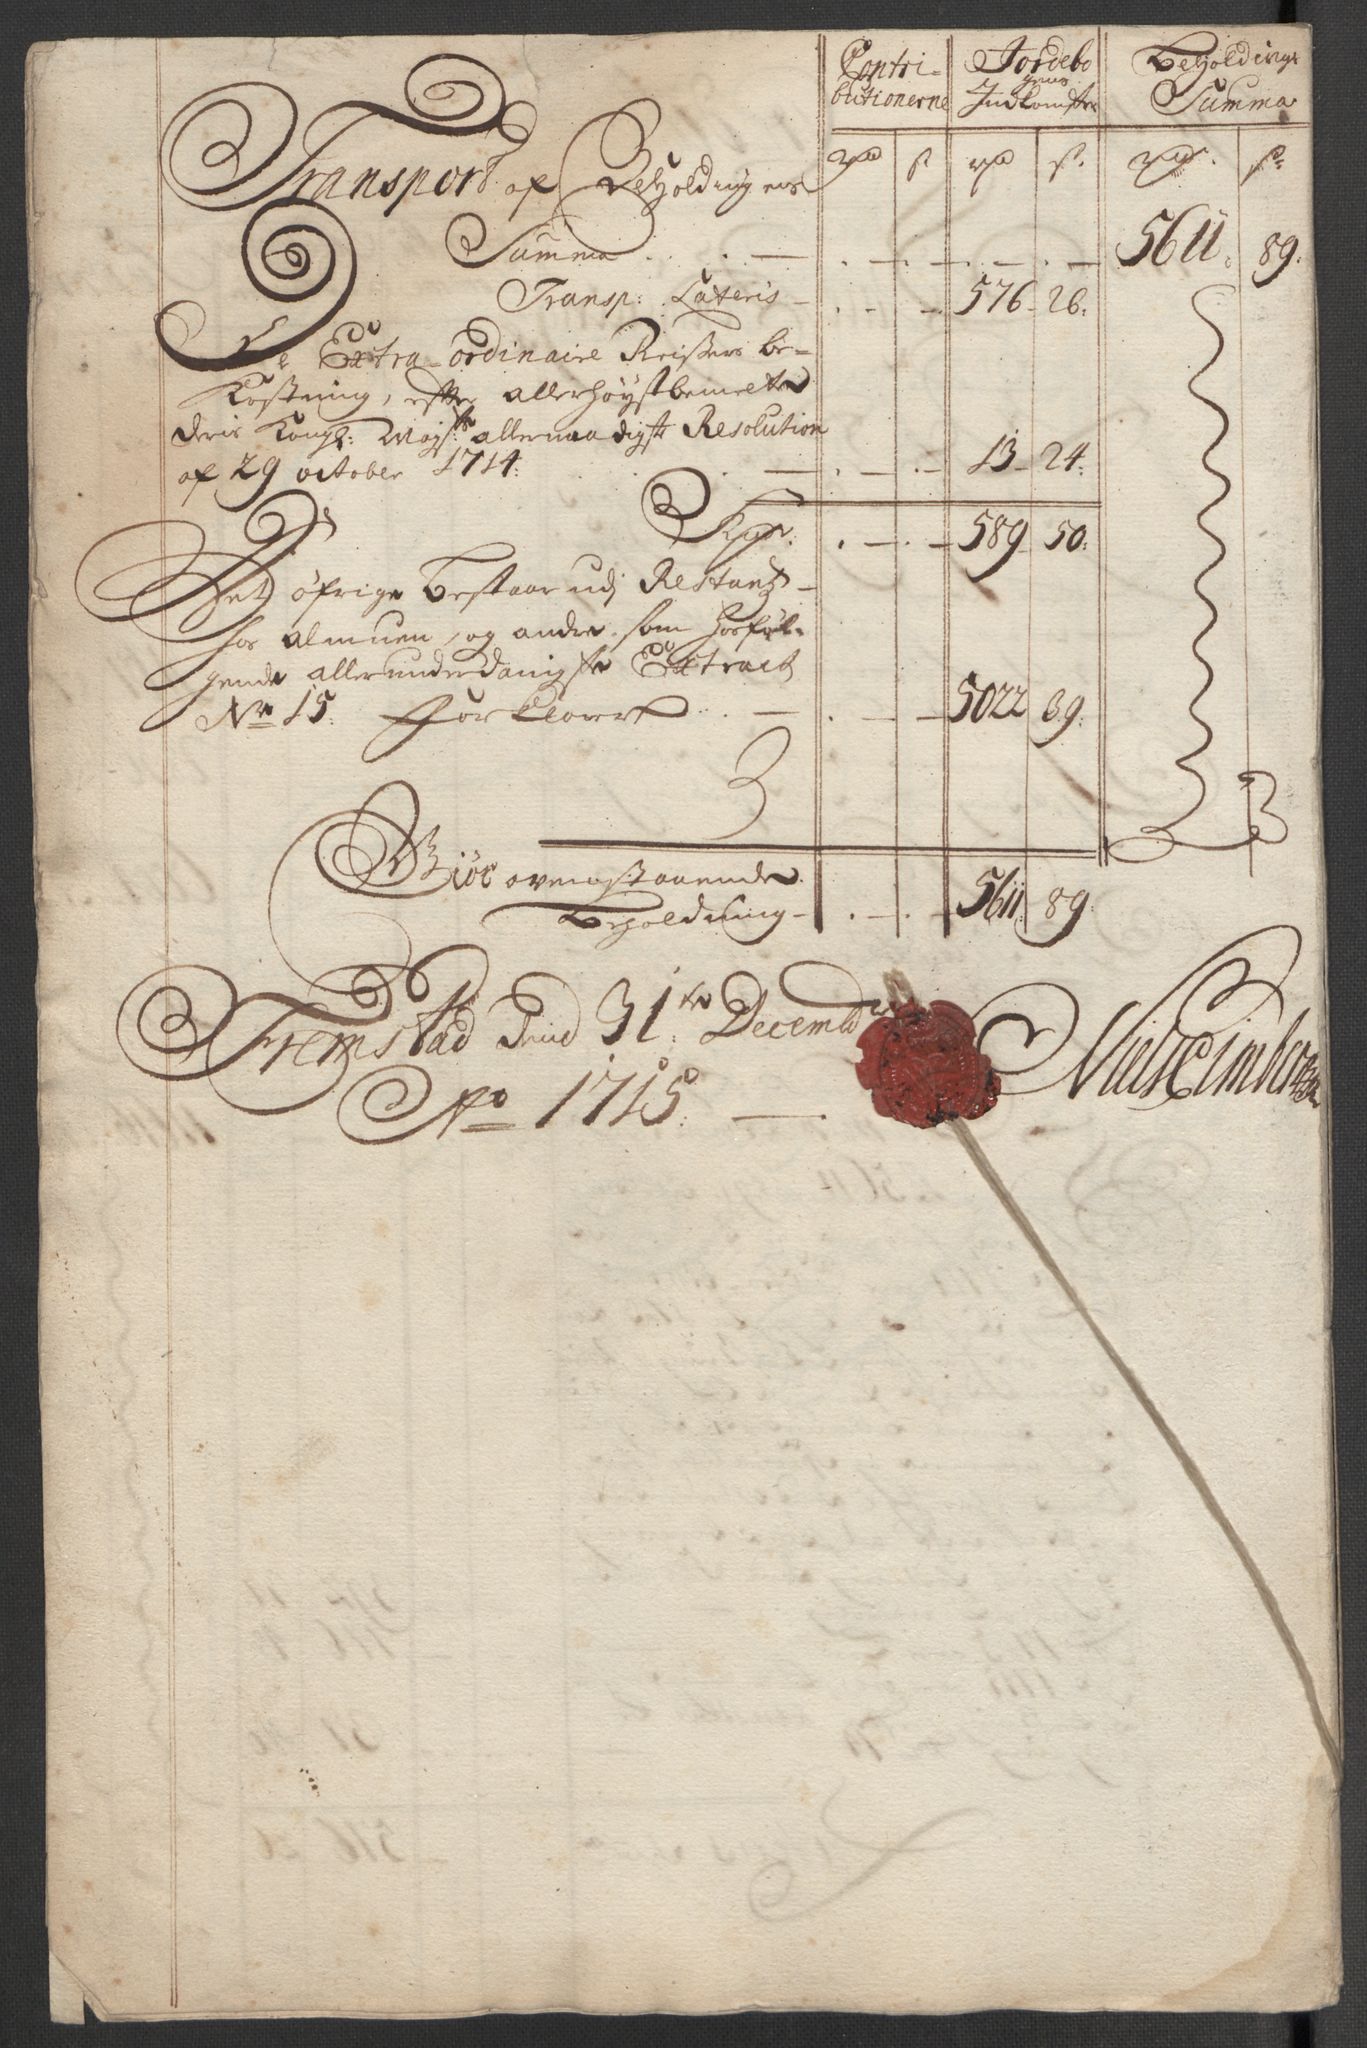 Contri- Jordebo Beholdings
butionerne gens Indkomster Summa
rd ß rd ß. rdr. ß
Transport af Beholdningens
Summa . . — . — . — . — 5611. 89.
Transp: Lateris — . . — 576 – 26:
De Extra-ordinaire Reisers be-
kostning, efter allerhøystbemelte
deris Kongl: Mays:ts allernaadigste Resolution
af 29 october 1714. — . — . — 13 – 24:
. — . — 589 50:
Det øfrige bestaar udj Restantz –
hos Almuen, og andre. som hosføl-
gende allerunderdanigste Extract
No 15. forklarer . . — . — — 5022 39:
Giør ovenstaaende
beholdning – . — . — 5611: 89:
Fremstad Dend 31.te December
Ao 1715. —